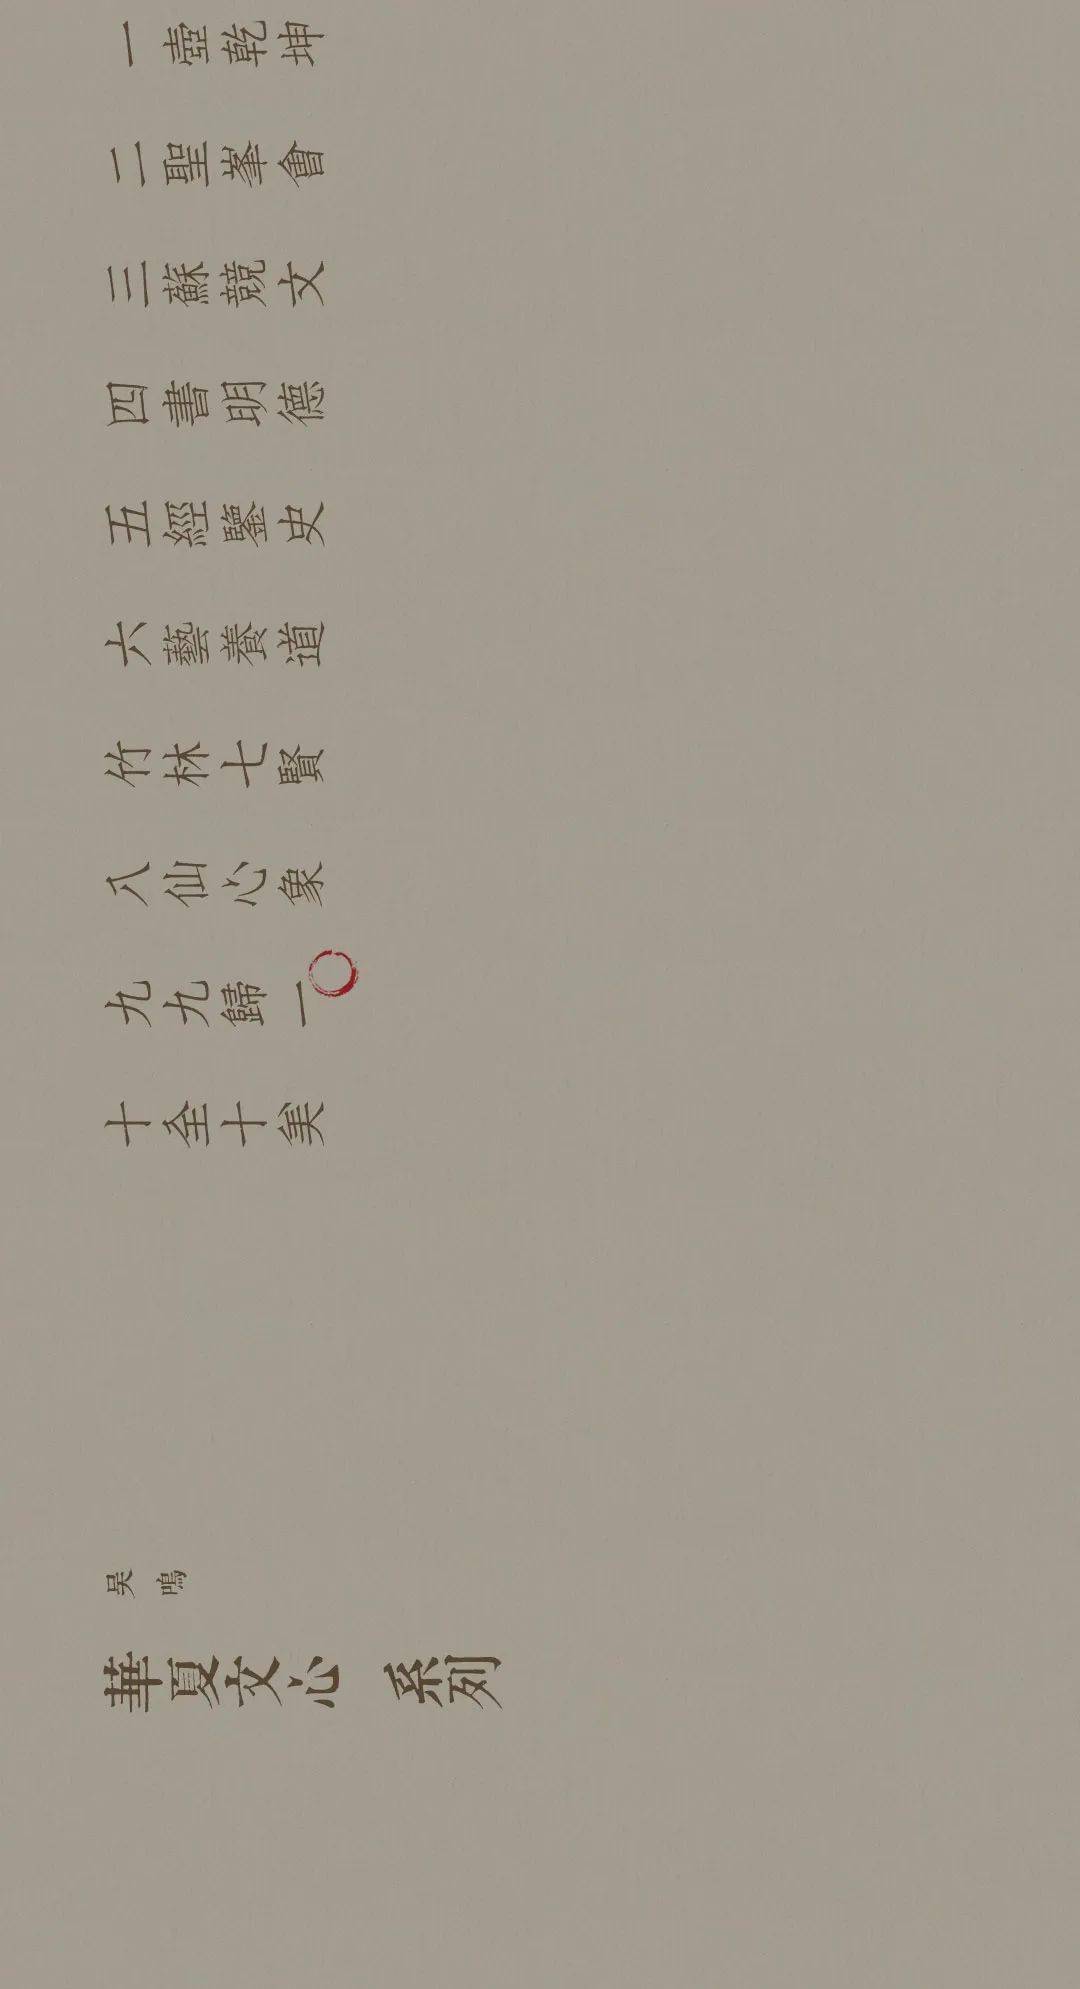 一壺乾坤
二聖峯會
三蘇競文
四書明德
五經鑒史
六藝養道
竹林七賢
八仙心象
九九歸一
十全十美
吴鳴
華夏文心 系列